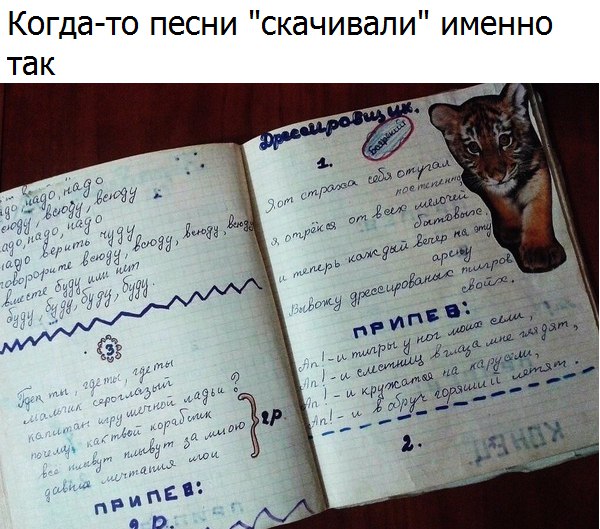 Когда-то песни "скачивали" именно
так
надо, надо
всюду, всюду
надо, надо, надо
надо верить чуду
всюду, всюду, всюду, всюду
вместе буду или нет
буду, буду, буду, буду.
3
Где ты, где ты, где ты
мальчик сероглазый
капитан игрушечной ладьи ?
почему, как твой кораблик
все плывут плывут за мною
давние мечтания мои
2р.
ПРИПЕВ:
2 р.
Дрессировщик.
Боярский
1.
Я от страха себя отучал
постепенно
я, отрёкся от всех мелочей
бытовых.
и теперь каждый вечер на эту
арену
Вывожу дрессированых тигров
своих.
ПРИПЕВ:
Ап! - и тигры у ног моих сели,
Ап! - и с лестниц в глаза мне глядят,
Ап! - и кружатся на карусели,
Ап! - и в обруч горящий летят.
2.
КОНЕЦ